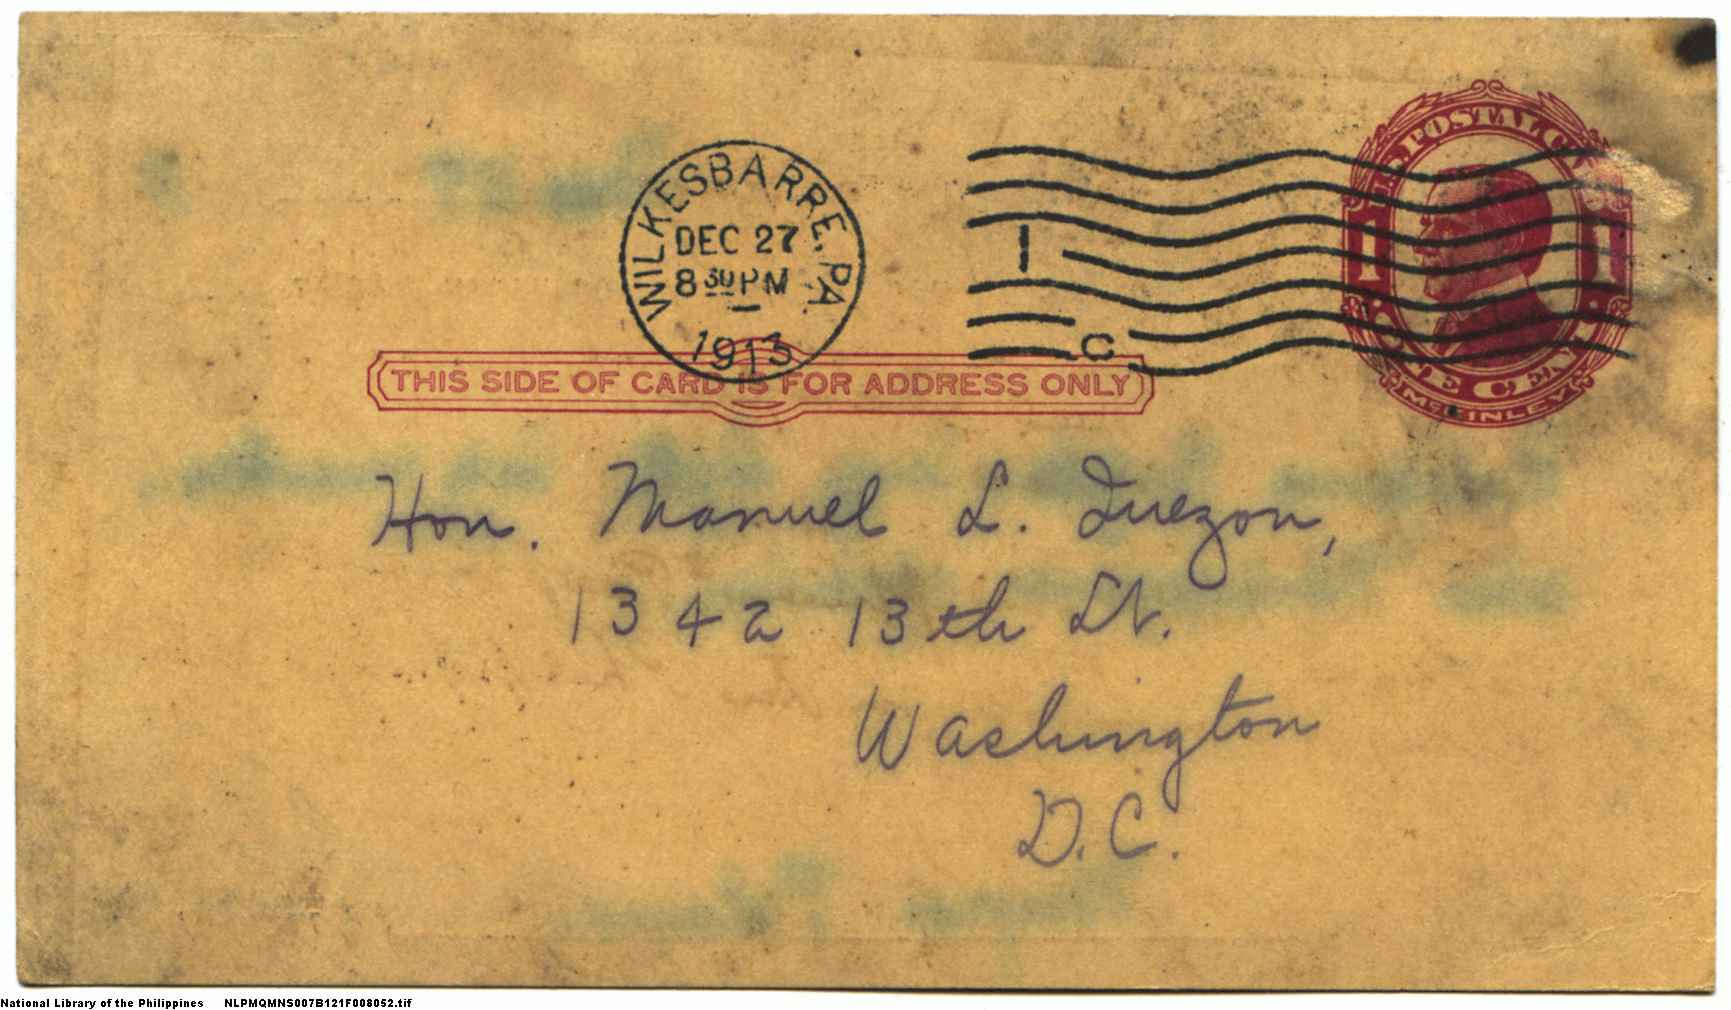 WILKESBARRE, PA.
DEC 27
8 30 PM
1913
1
C
U.S. POSTAL CARD
1 1
ONE CENT
McKINLEY
THIS SIDE OF CARD IS FOR ADDRESS ONLY
Hon. Manuel L. Quezon,
1342 13th St.
Washington
D.C.
National Library of the Philippines NLPMQMNS007B121F008052.tif